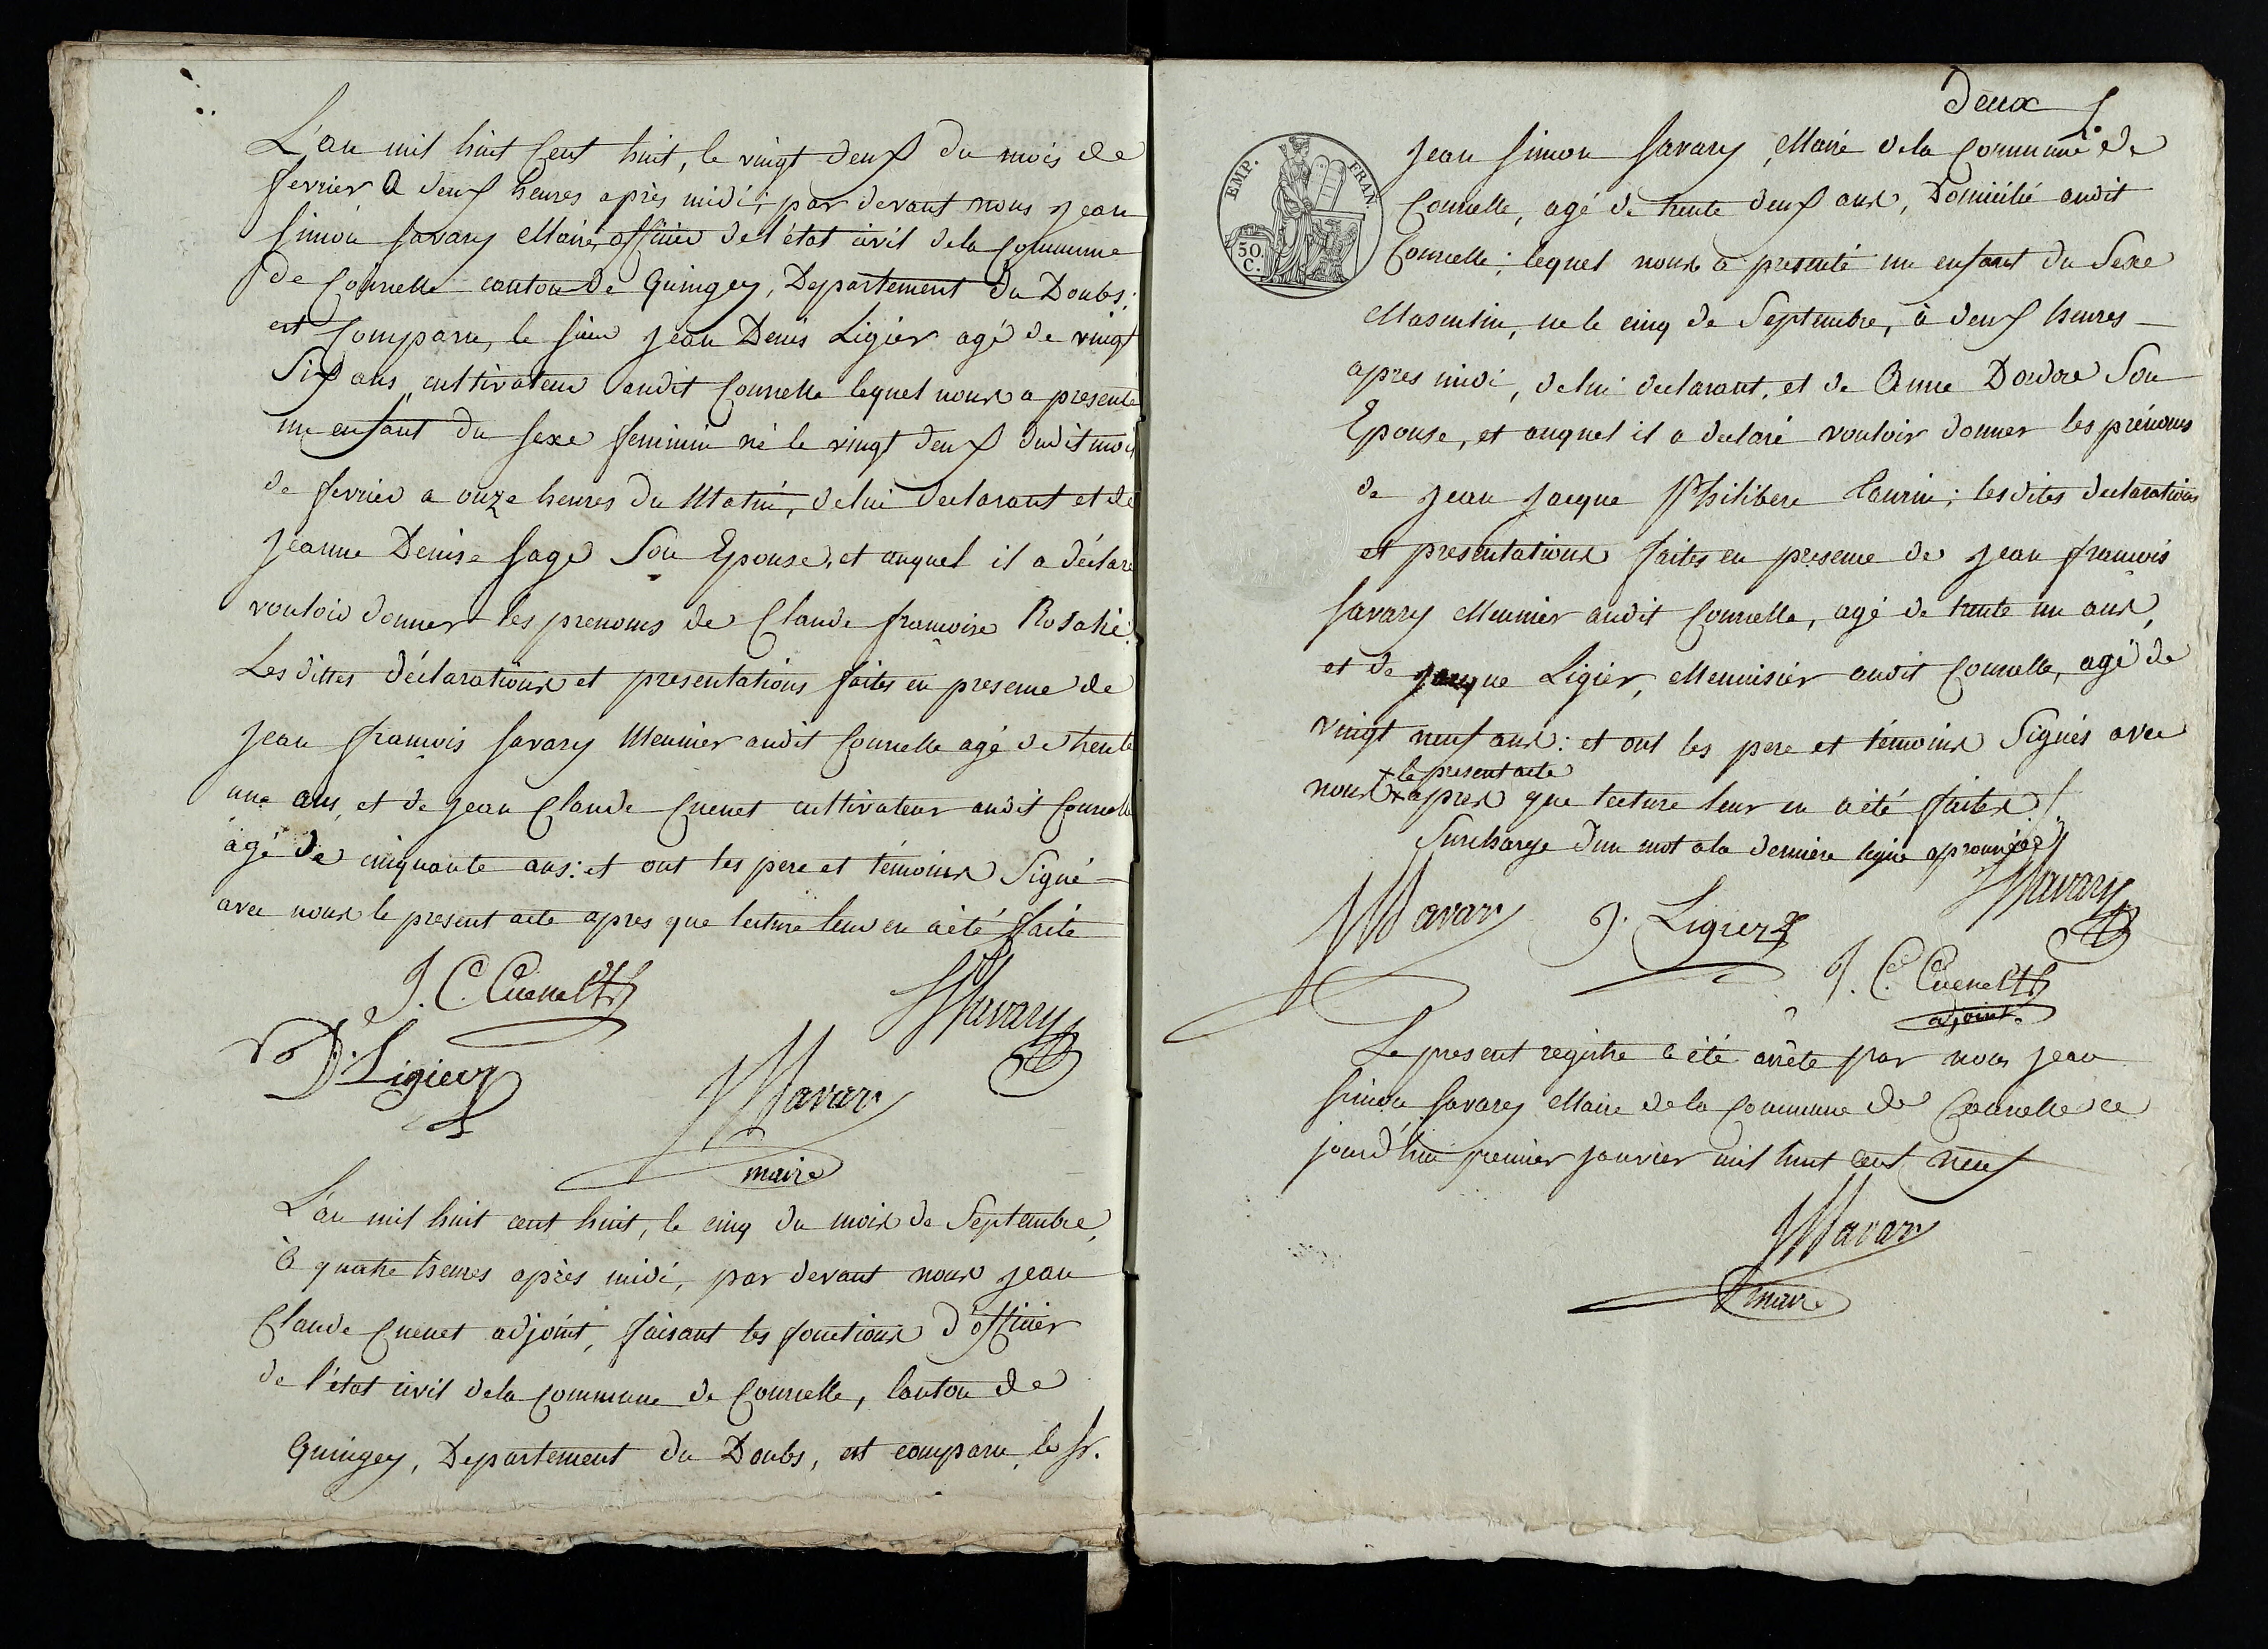 L'an mil huit Cent huit, le vingt deux du mois de
fevrier a deux heures après midi; par devant nous jean
simon savary Maire, officier de l'état civil de la Commune
de Courcelle canton de Quingey, Departement du Doubs;
est Comparu, le sieur jean Denis Ligier agé de vingt
Six ans, cultivateur audit Courcelle lequel nous a presenté
un enfant du sexe feminin né le vingt deux dudit mois
de fevrier a onze heures du Matin, de lui declarant et de
jeanne Denise sage Son Epouse, et auquel il a déclaré
vouloir donner les prenoms de Claude francoise Rosalie.
Les dittes déclarations et presentations faites en presence de
jean francois savary Meunier audit Courcelle agé de trente
une ans, et de jean Claude Cuenet cultivateur audit Courcelle
agé de cinquante ans: et ont les pere et témoins Signé
avec nous le present acte apres que lecture leur en a été faite
J. C. Cuenet
Savary
D. Ligier
Savary
maire
L'an mil huit cent huit, le cinq du mois de Septembre,
à quatre heures après midi, par devant nous jean
Claude Cuenet adjoint, faisant les fonctions d'officier
de l'état civil de la Commune de Courcelle, Canton de
Quingey, Departement du Doubs, est comparu le sr.
deux
EMP. FRAN.
50.
C.
jean simon savary, Maire de la Commune de
Courcelle, agé de trente deux ans, Domicilié audit
Courcelle; lequel nous a presenté un enfant du Sexe
Masculin, ne le cinq de Septembre, à deux heures
apres midi, de lui declarant, et de Anne Dordor Son
Epouse, et auquel il a declaré vouloir donner les prénoms
de jean jacque Philibere ; les dites declarations
et presentations faites en presence de jean francois
savary Meunier audit Courcelle, agé de trente un ans,
et de jacque Ligier, Menuisier audit Courcelle, agé de
vingt neuf ans: et ont les pere et témoins Signés avec
+ le present acte
nous + apres que lecture leur en a été faites./.
Surcharge d'un mot a la derniere ligne aprouvée
Savary
J. Ligier
Savary
J. C. Cuenet
adjoint.
Le present registre a été arrêté par nous jean
simon savary Maire de la Commune de Courcelle ce
jourd'hui premier janvier mil huit cent neuf
Savary
maire